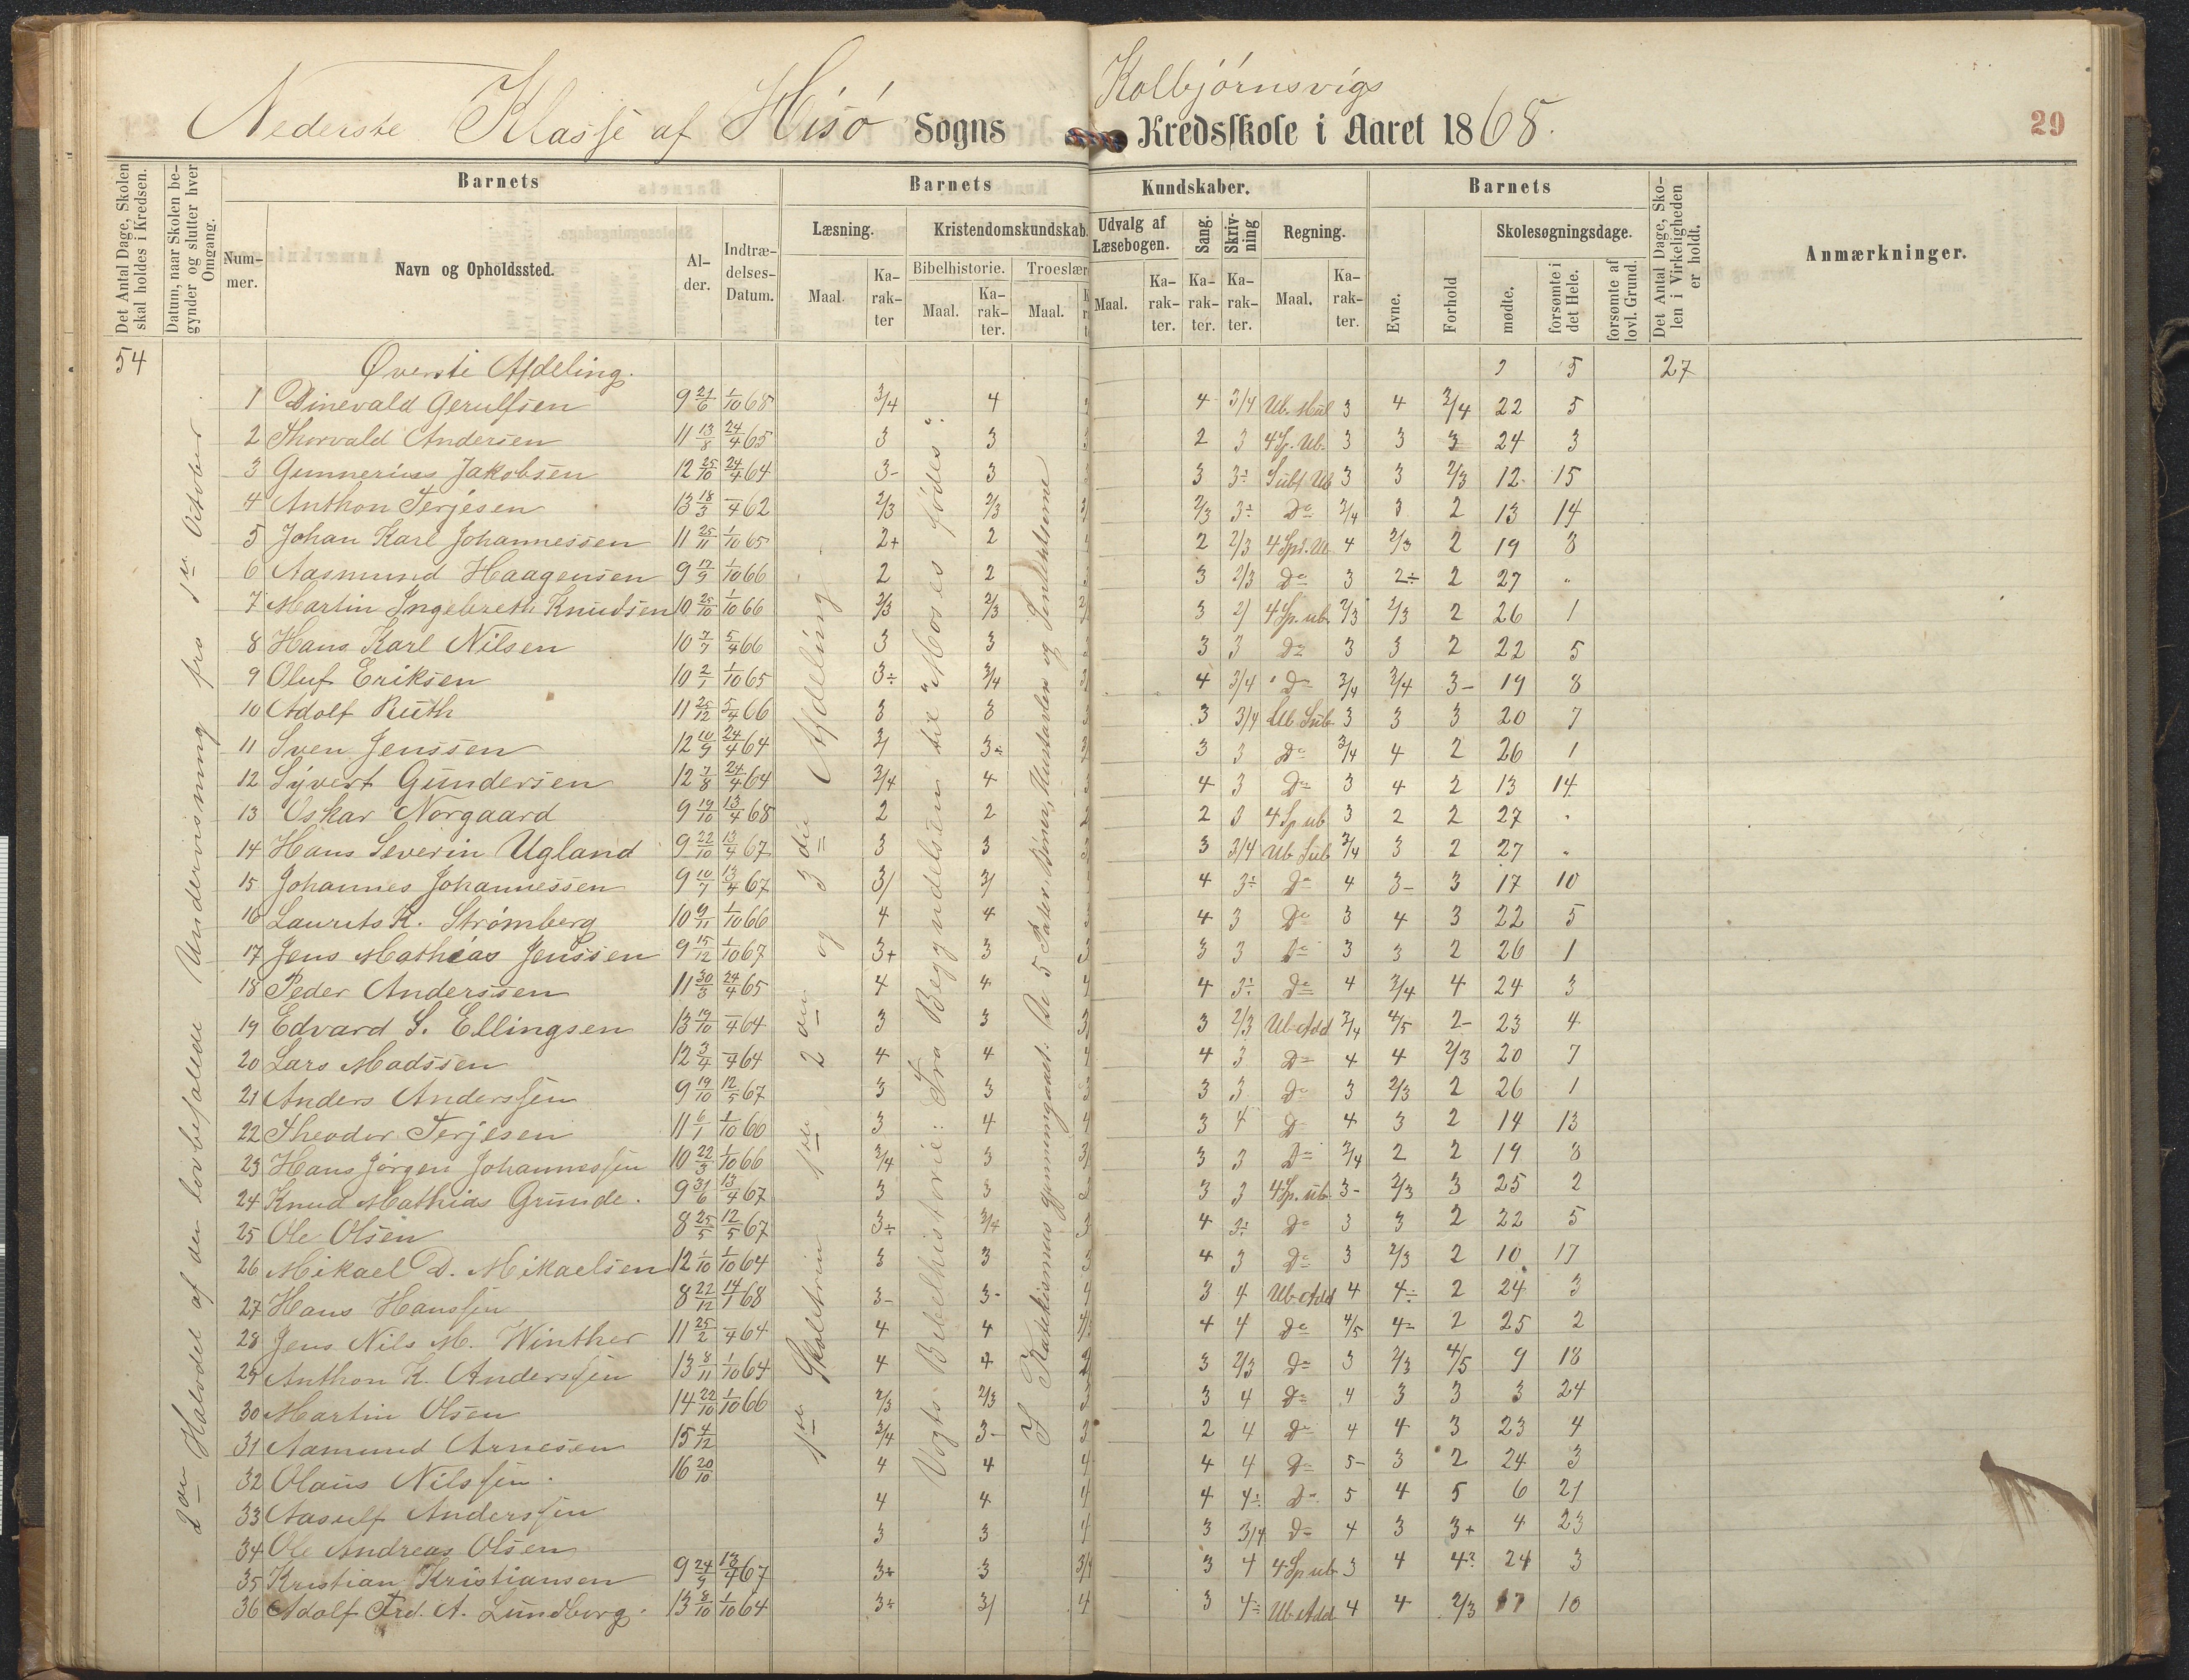 Kolbjørnsvigs
Nederste Klasse af Hisø Sogns Kredsskole i Aaret 1868.
29
Det Antal Dage, Skolen skal holdes i Kredsen.
Datum, naar Skolen begynder og slutter hver Omgang.
Barnets
Barnets
Kundskaber.
Barnets
Det Antal Dage, Skolen i Virkeligheden er holdt.
Anmærkninger.
Nummer.
Navn og Opholdssted.
Alder.
Indtrædelses-Datum.
Læsning.
Kristendomskundskab.
Udvalg af Læsebogen.
Sang.
Skrivning
Regning.
Evne.
Forhold
Skolesøgningsdage.
Bibelhistorie.
Troeslær
Maal.
Karakter
Maal.
Karakter.
Maal.
Maal.
Karakter.
Karakter.
Karakter.
Maal.
Karakter.
mødte.
forsømte i det Hele.
forsømte af lovl. Grund.
54
2den Halvdel af den lovbefalede Undervisning fra 1ste October
1ste Skoletrin 1ste 2den og 3die Afdeling
Vogts Bibelhistorie: Fra Begyndelsen til "Moses fødes".
Øverste Afdeling. 5 27
1 Dinevald Gerulfsen 9 21/6 1/10 68 3/4 4 4 3/4 Ub. Mul 3 4 3/4 22 5
2 Thorvald Andersen 11 13/8 24/4 65 3 3 2 3 4 Sp. Ub. 3 3 3 24 3
3 Gunnerius Jakobsen 12 25/10 24/4 64 3- 3 3 3÷ Subt. Ub 3 3 2/3 12 15
4 Anthon Terjesen 13 18/3 /4 62 2/3 2/3 2/3 3÷ Do 3/4 3 2 13 14
5 Johan Karl Johannessen 11 25/11 1/10 65 2+ 2 2 2/3 4 Spd. Ub 4 2/3 2 19 8
6 Aasmund Haagensen 9 17/9 1/10 66 2 2 3 2/3 Do 3 2÷ 2 27 "
7 Martin Ingebreth Knudsen 10 25/10 1/10 66 2/3 2/3 3 2/ 4 Sp. ub. 2/3 2/3 2 26 1
8 Hans Karl Nilsen 10 7/7 5/4 66 3 3 3 3 Do 3 3 2 22 5
9 Oluf Eriksen 10 2/1 1/10 65 3÷ 3/4 4 3/4 Do 3/4 3/4 3- 19 8
10 Adolf Ruth 11 25/12 5/4 66 3 3 3 3/4 Ub Sub 3 3 3 20 7
11 Sven Jenssen 12 10/9 24/4 64 3/ 3÷ 3 3 Do 3/4 4 2 26 1
12 Syvert Gundersen 12 7/8 24/4 64 3/4 4 4 3 Do 3 4 2 13 14
13 Oskar Norgaard 9 19/10 13/4 68 2 2 2 3 4 Sp ub 3 2 2 27 "
14 Hans Severin Ugland 9 22/10 13/4 67 3 3 3 3/4 Ub Sub 3/4 3 2 27 "
15 Johannes Johannessen 9 10/7 13/4 67 3/ 3/ 4 3÷ Do 4 3- 3 17 10
16 Laurits K. Strømberg 10 9/11 1/10 66 4 4 4 3 Do 3 4 3 22 5
17 Jens Mathias Jenssen 9 15/12 1/10 67 3+ 3 3 3 Do 3 3 2 26 1
18 Peder Anderssen 11 30/3 24/4 65 4 4 4 3÷ Do 4 3/4 4 24 3
19 Edvard S. Ellingsen 13 19/10 /4 64 3 3 3 2/3 Ub Add 3/4 4/5 2- 23 4
20 Lars Madssen 12 3/4 /4 64 4 4 4 3 Do 4 4 2/3 20 7
21 Anders Anderssen 9 19/10 12/5 67 3 3 3 3 Do 3 2/3 2 26 1
22 Theodor Terjesen 11 6/1 1/10 66 3 4 3 4 Do 4 3 2 14 13
23 Hans Jørgen Johannessen 10 22/3 1/10 66 3/4 3 3 3 Do 3/4 2 2 19 8
24 Knud Mathias Grunde. 9 31/6 13/4 67 3 3 3 3 4 Sp. ub 3- 2/3 3 25 2
25 Ole Olsen 8 25/5 12/5 67 3÷ 3/4 4 3÷ Do 3 3 2 22 5
26 Mikael D. Mikaelsen 12 1/10 1/10 64 3 3 4 3 Do 3 2/3 2 10 17
27 Hans Hanssen 8 22/12 14/1 68 3- 3- 3 4 Ub Add 4 4÷ 2 24 3
28 Jens Nils M. Winther 11 25/2 /4 64 4 4 4 4 Do 4/5 4- 2 25 2
29 Anthon K. Anderssen 13 8/11 1/10 64 4 4 3 2/3 Do 3 2/3 4/5 9 18
30 Martin Olsen 14 22/10 1/10 66 2/3 2/3 3 4 Do 4 3 3 3 24
31 Aamund Arnesen 15 4/12 3/4 3- 2 4 Do 4 4 3 23 4
32 Olaus Nilssen. 16 20/10 4 4 4 4 Do 5- 3 2 24 3
33 Aasulf Anderssen 4 4 4 4÷ Do 5 4 5 6 21
34 Ole Andreas Olsen 3 3 3 3/4 Do 4 3 3+ 4 23
35 Kristian Kristiansen 9 24/9 13/4 67 3+ 3 3 4 4 Sp ub 3 4 4? 24 3
36 Adolf Frd. A. Lundborg. 13 8/10 1/10 64 3÷ 3/ 3 4÷ Ub Add 4 4 2/3 17 10